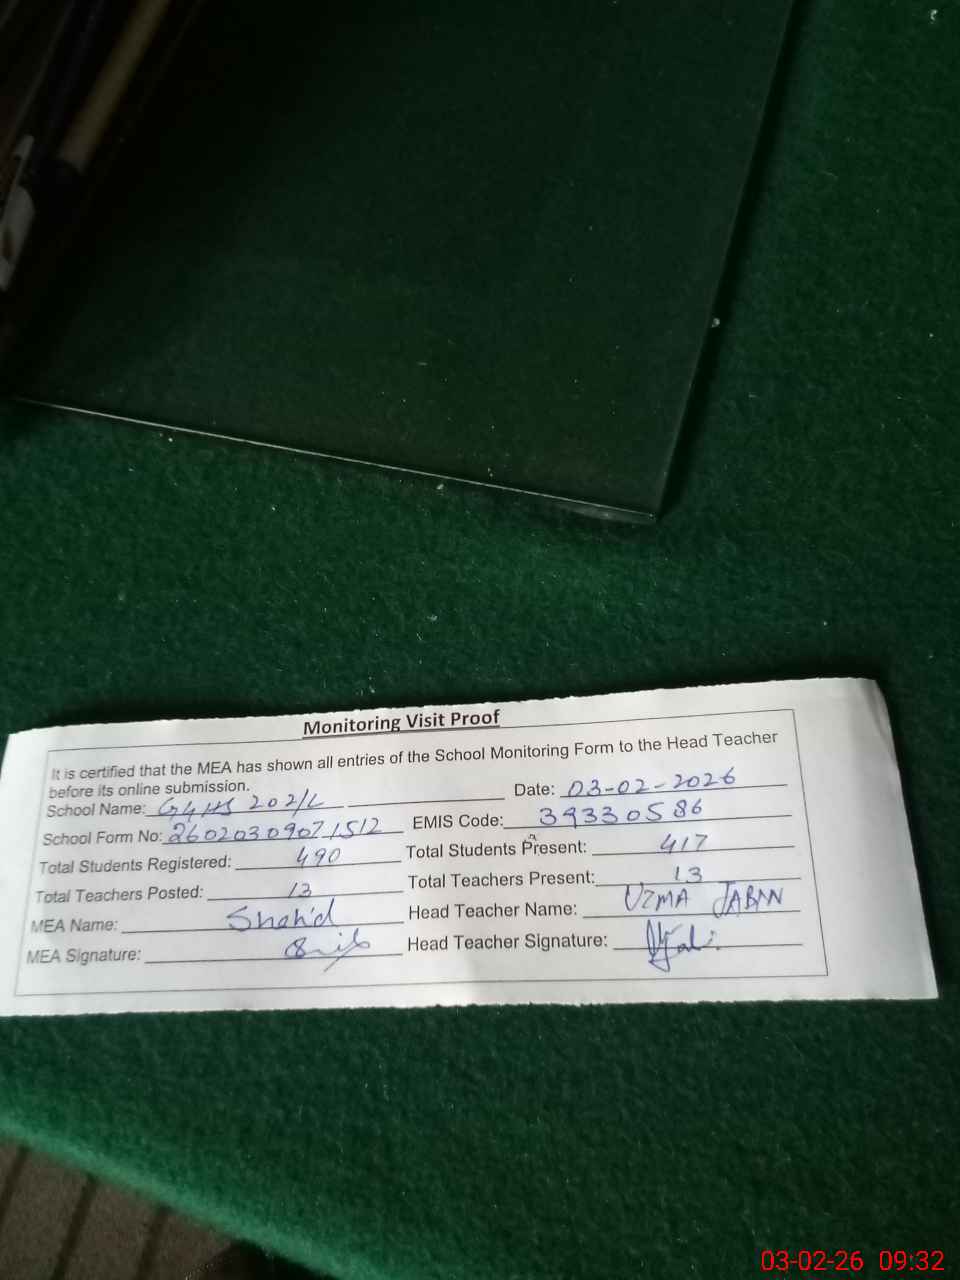 Monitoring Visit Proof
It is certified that the MEA has shown all entries of the School Monitoring Form to the Head Teacher
before its online submission.
School Name: GGHS 202/L Date: 03-02-2026
School Form No: 26020309071512 EMIS Code: 39330586
Total Students Registered: 490 Total Students Present: 417
Total Teachers Posted: 13 Total Teachers Present: 13
MEA Name: Shahid Head Teacher Name: UZMA JABAN
MEA Signature: Head Teacher Signature:
03-02-26 09:32